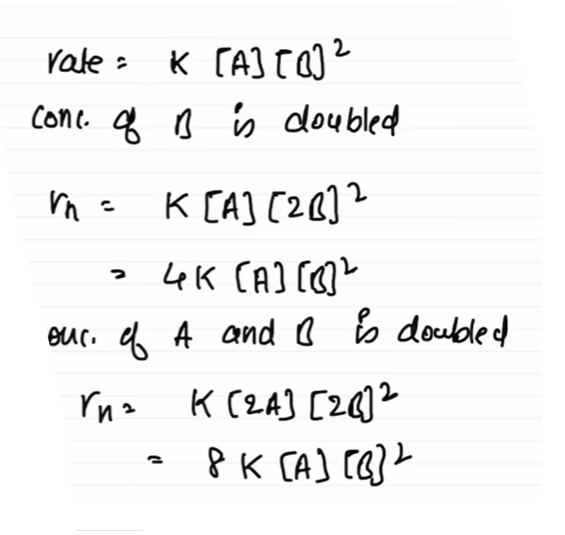 rate = K [A] [B]²
Conc. of B is doubled
rn = K [A] [2B]²
= 4K [A] [B]²
onc. of A and B is doubled
rn = K [2A] [2B]²
= 8 K [A] [B]²